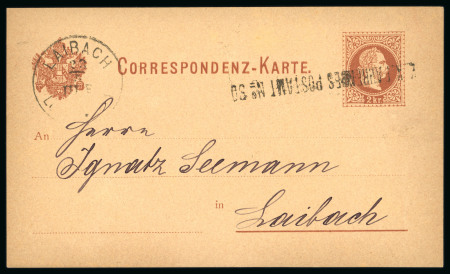 LAIBACH
CORRESPONDENZ-KARTE.
FAHRENDES POSTAMT No 50
2 kr.
An
Herrn
Ignatz Seemann
in
Laibach